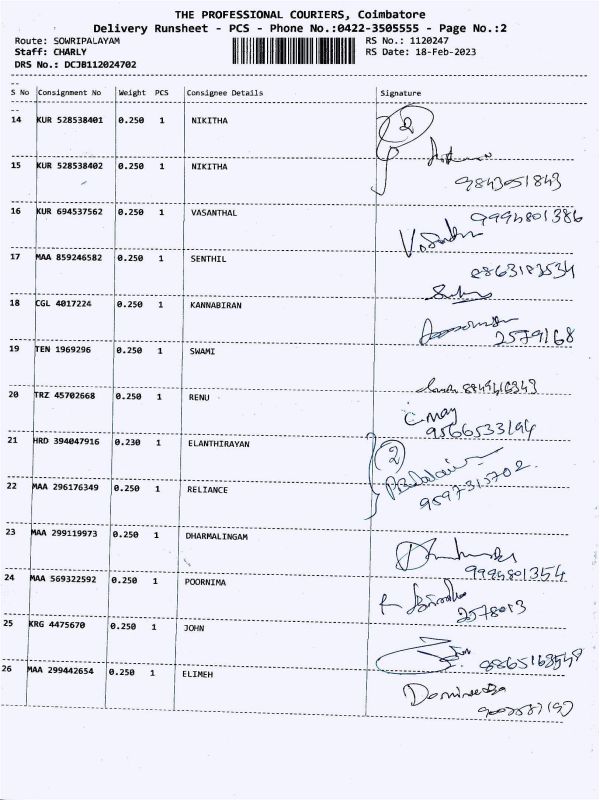 THE PROFESSIONAL COURIERS, Coimbatore
Delivery Runsheet - PCS - Phone No.:0422-3505555 - Page No.:2
Route: SOWRIPALAYAM RS No.: 1120247
Staff: CHARLY RS Date: 18-Feb-2023
DRS No.: DCJB112024702
S No Consignment No Weight PCS Consignee Details Signature
14 KUR 528538401 0.250 1 NIKITHA 2
15 KUR 528538402 0.250 1 NIKITHA
9843051843
16 KUR 694537562 0.250 1 VASANTHAL 9994801386
17 MAA 859246582 0.250 1 SENTHIL
18 CGL 4017224 0.250 1 KANNABIRAN
2579168
19 TEN 1969296 0.250 1 SWAMI
20 TRZ 45702668 0.250 1 RENU
9566533194
21 HRD 394047916 0.230 1 ELANTHIRAYAN 2
22 MAA 296176349 0.250 1 RELIANCE 9597315702
23 MAA 299119973 0.250 1 DHARMALINGAM
9994801354
24 MAA 569322592 0.250 1 POORNIMA
2578013
25 KRG 4475670 0.250 1 JOHN
26 MAA 299442654 0.250 1 ELIMEH